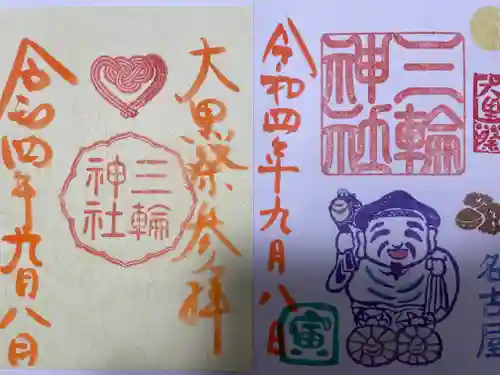 大黒祭参拝
三輪
神社
令和四年九月八日
三輪
神社
大黒祭
名古屋
寅
令和四年九月八日